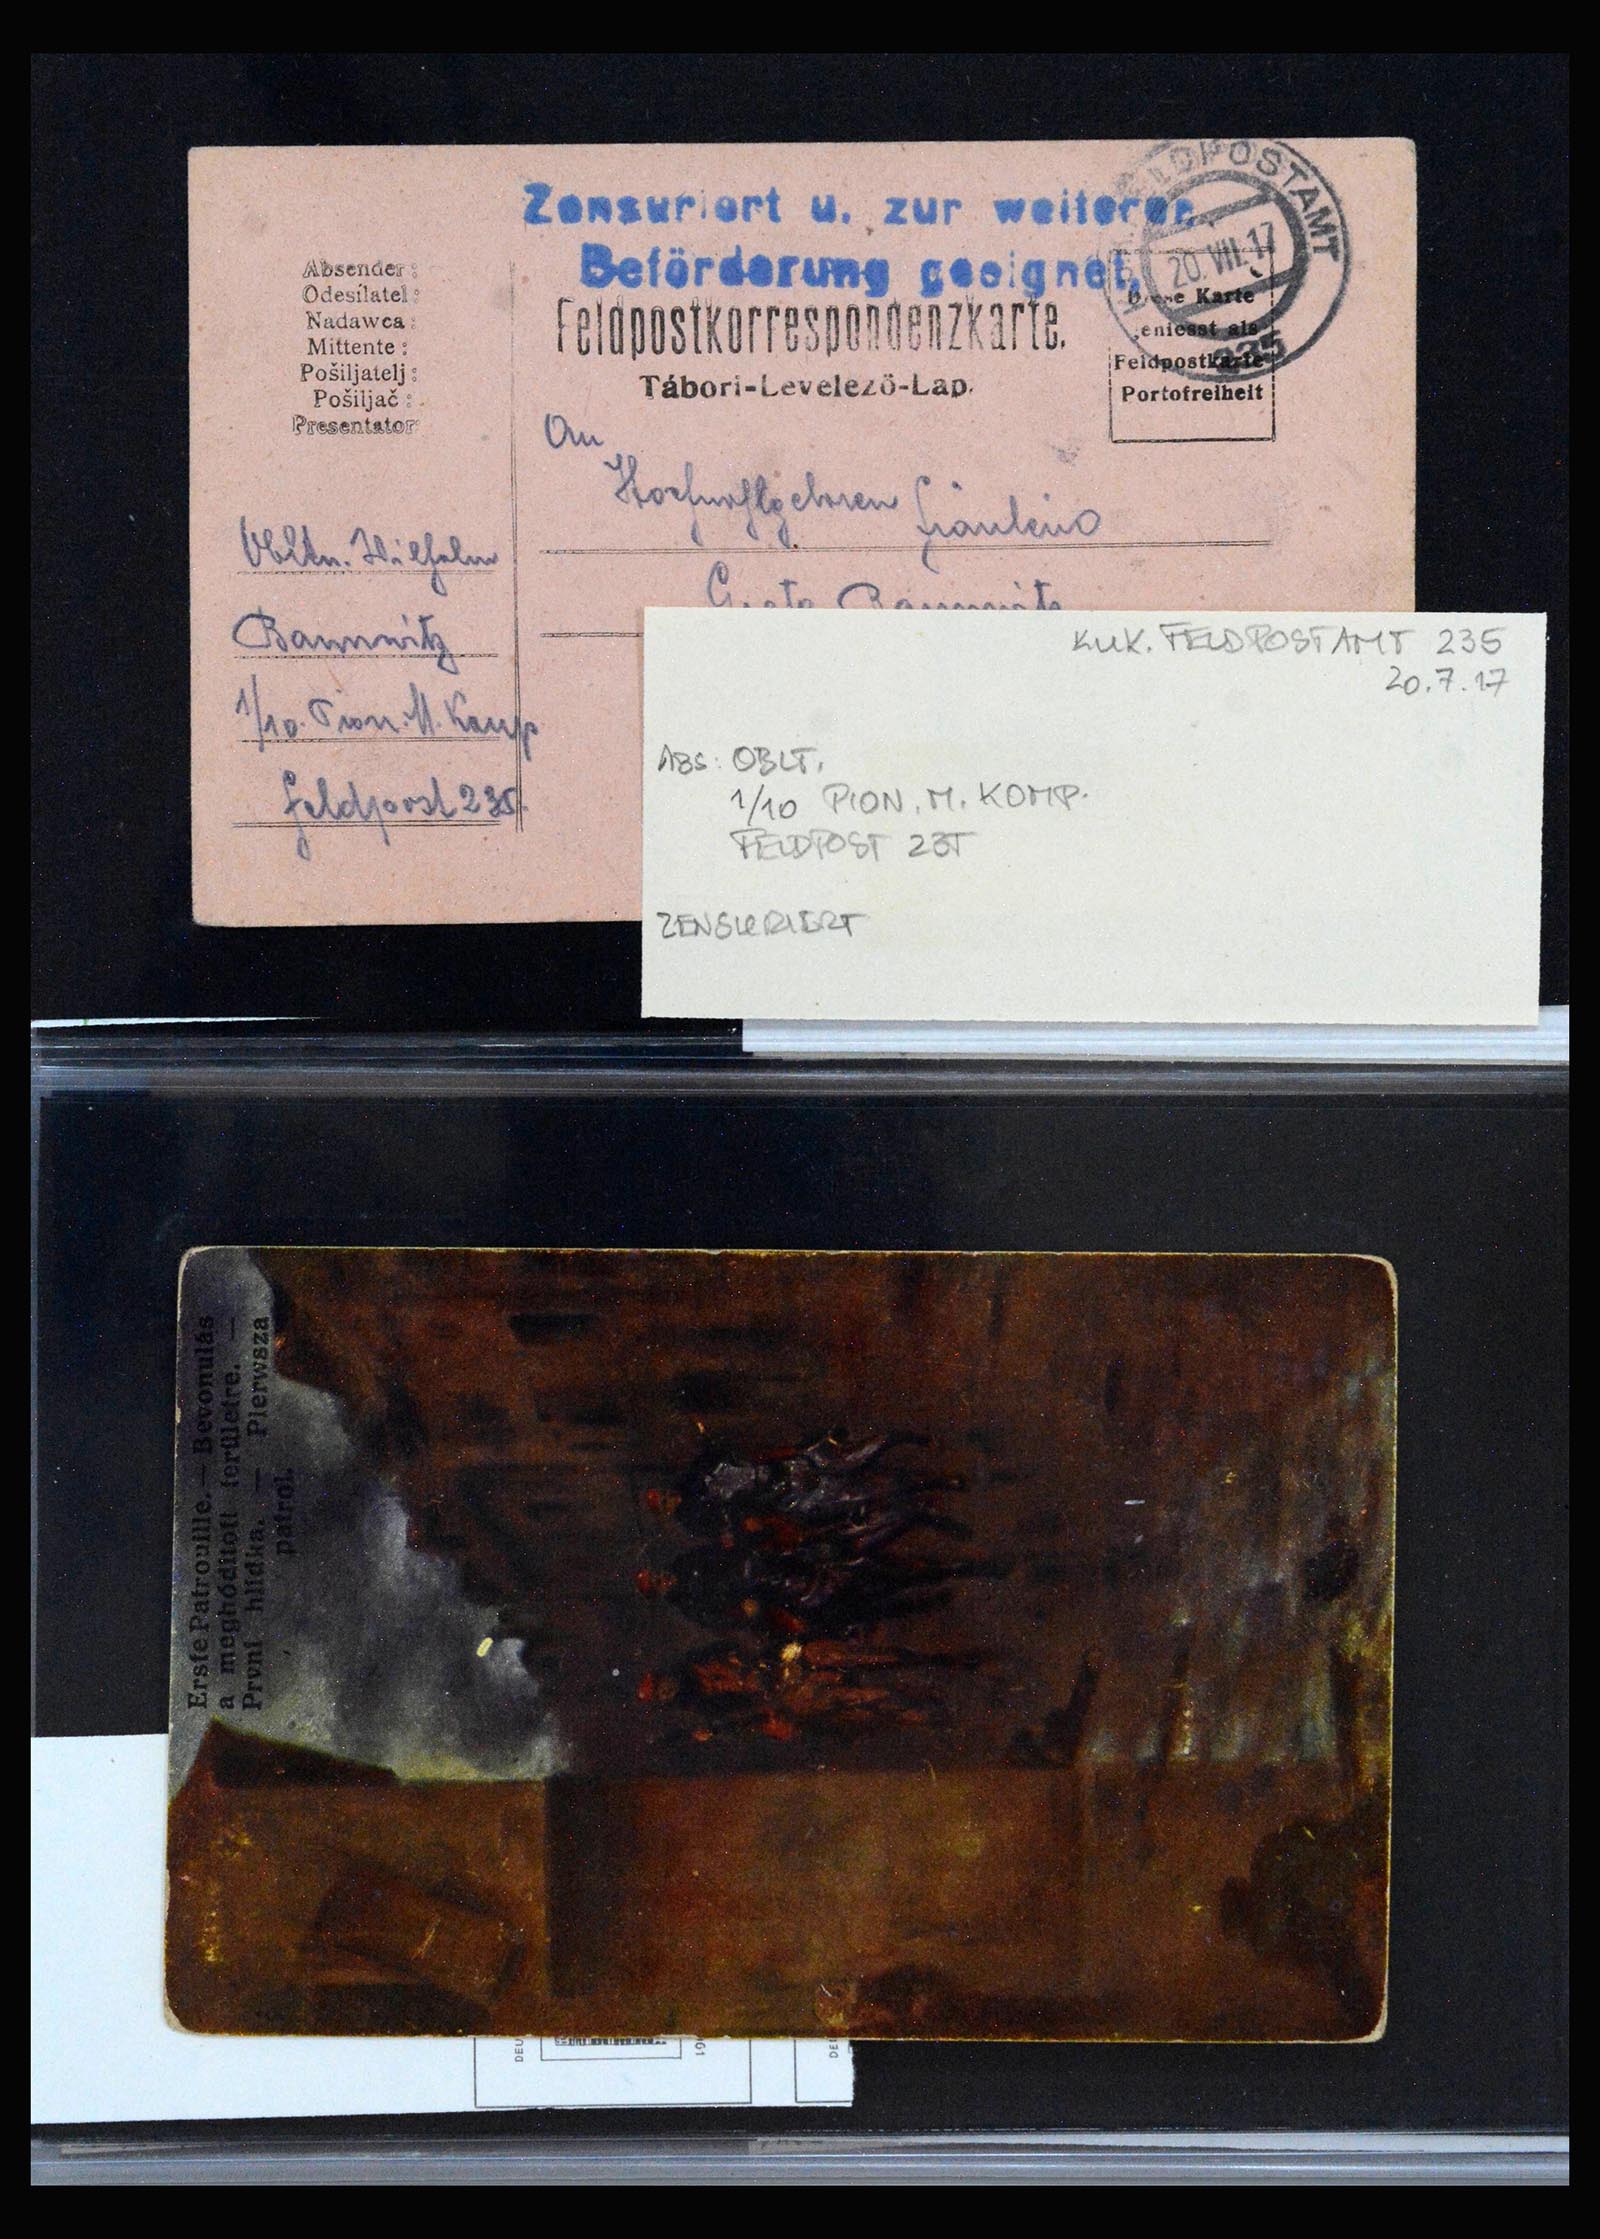 Zensuriert u. zur weiteren
Beförderung geeignet.
FELDPOSTAMT
20.VII.17
235
Absender:
Odesílatel:
Nadawca:
Mittente:
Pošiljatelj:
Pošiljač:
Presentator:
Feldpostkorrespondenzkarte.
Tábori-Levelező-Lap.
Diese Karte
geniesst als
Feldpostkarte
Portofreiheit
An
Hochwohlgeboren Fräulein
Obltn. Wilhelm
1/10. Pion. M. Komp
Feldpost 235.
KUK. FELDPOSTAMT 235
20.7.17
ABS: OBLT.
1/10 PION. M. KOMP.
FELDPOST 235
ZENSURIERT
Erste Patrouille. — Bevonulás
a meghódított területre. —
První hlídka. — Pierwsza
patrol.
DEU
61
DE